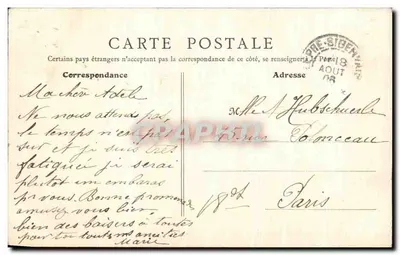 CARTE POSTALE
Certains pays étrangers n'acceptant pas la correspondance de ce côté, se renseigner à la Poste
Correspondance
Ma chère Adèle
Ne nous attends pas,
le temps n'est pas
sur et je suis très
fatiguée je serai
plutôt un embarras
p vous. Bonne promenade
amusez vous bien,
bien des baisers à toutes
Marie
Adresse
Mlle A Hubschwerle
Rue Polonceau
18et
Paris
18
AOUT